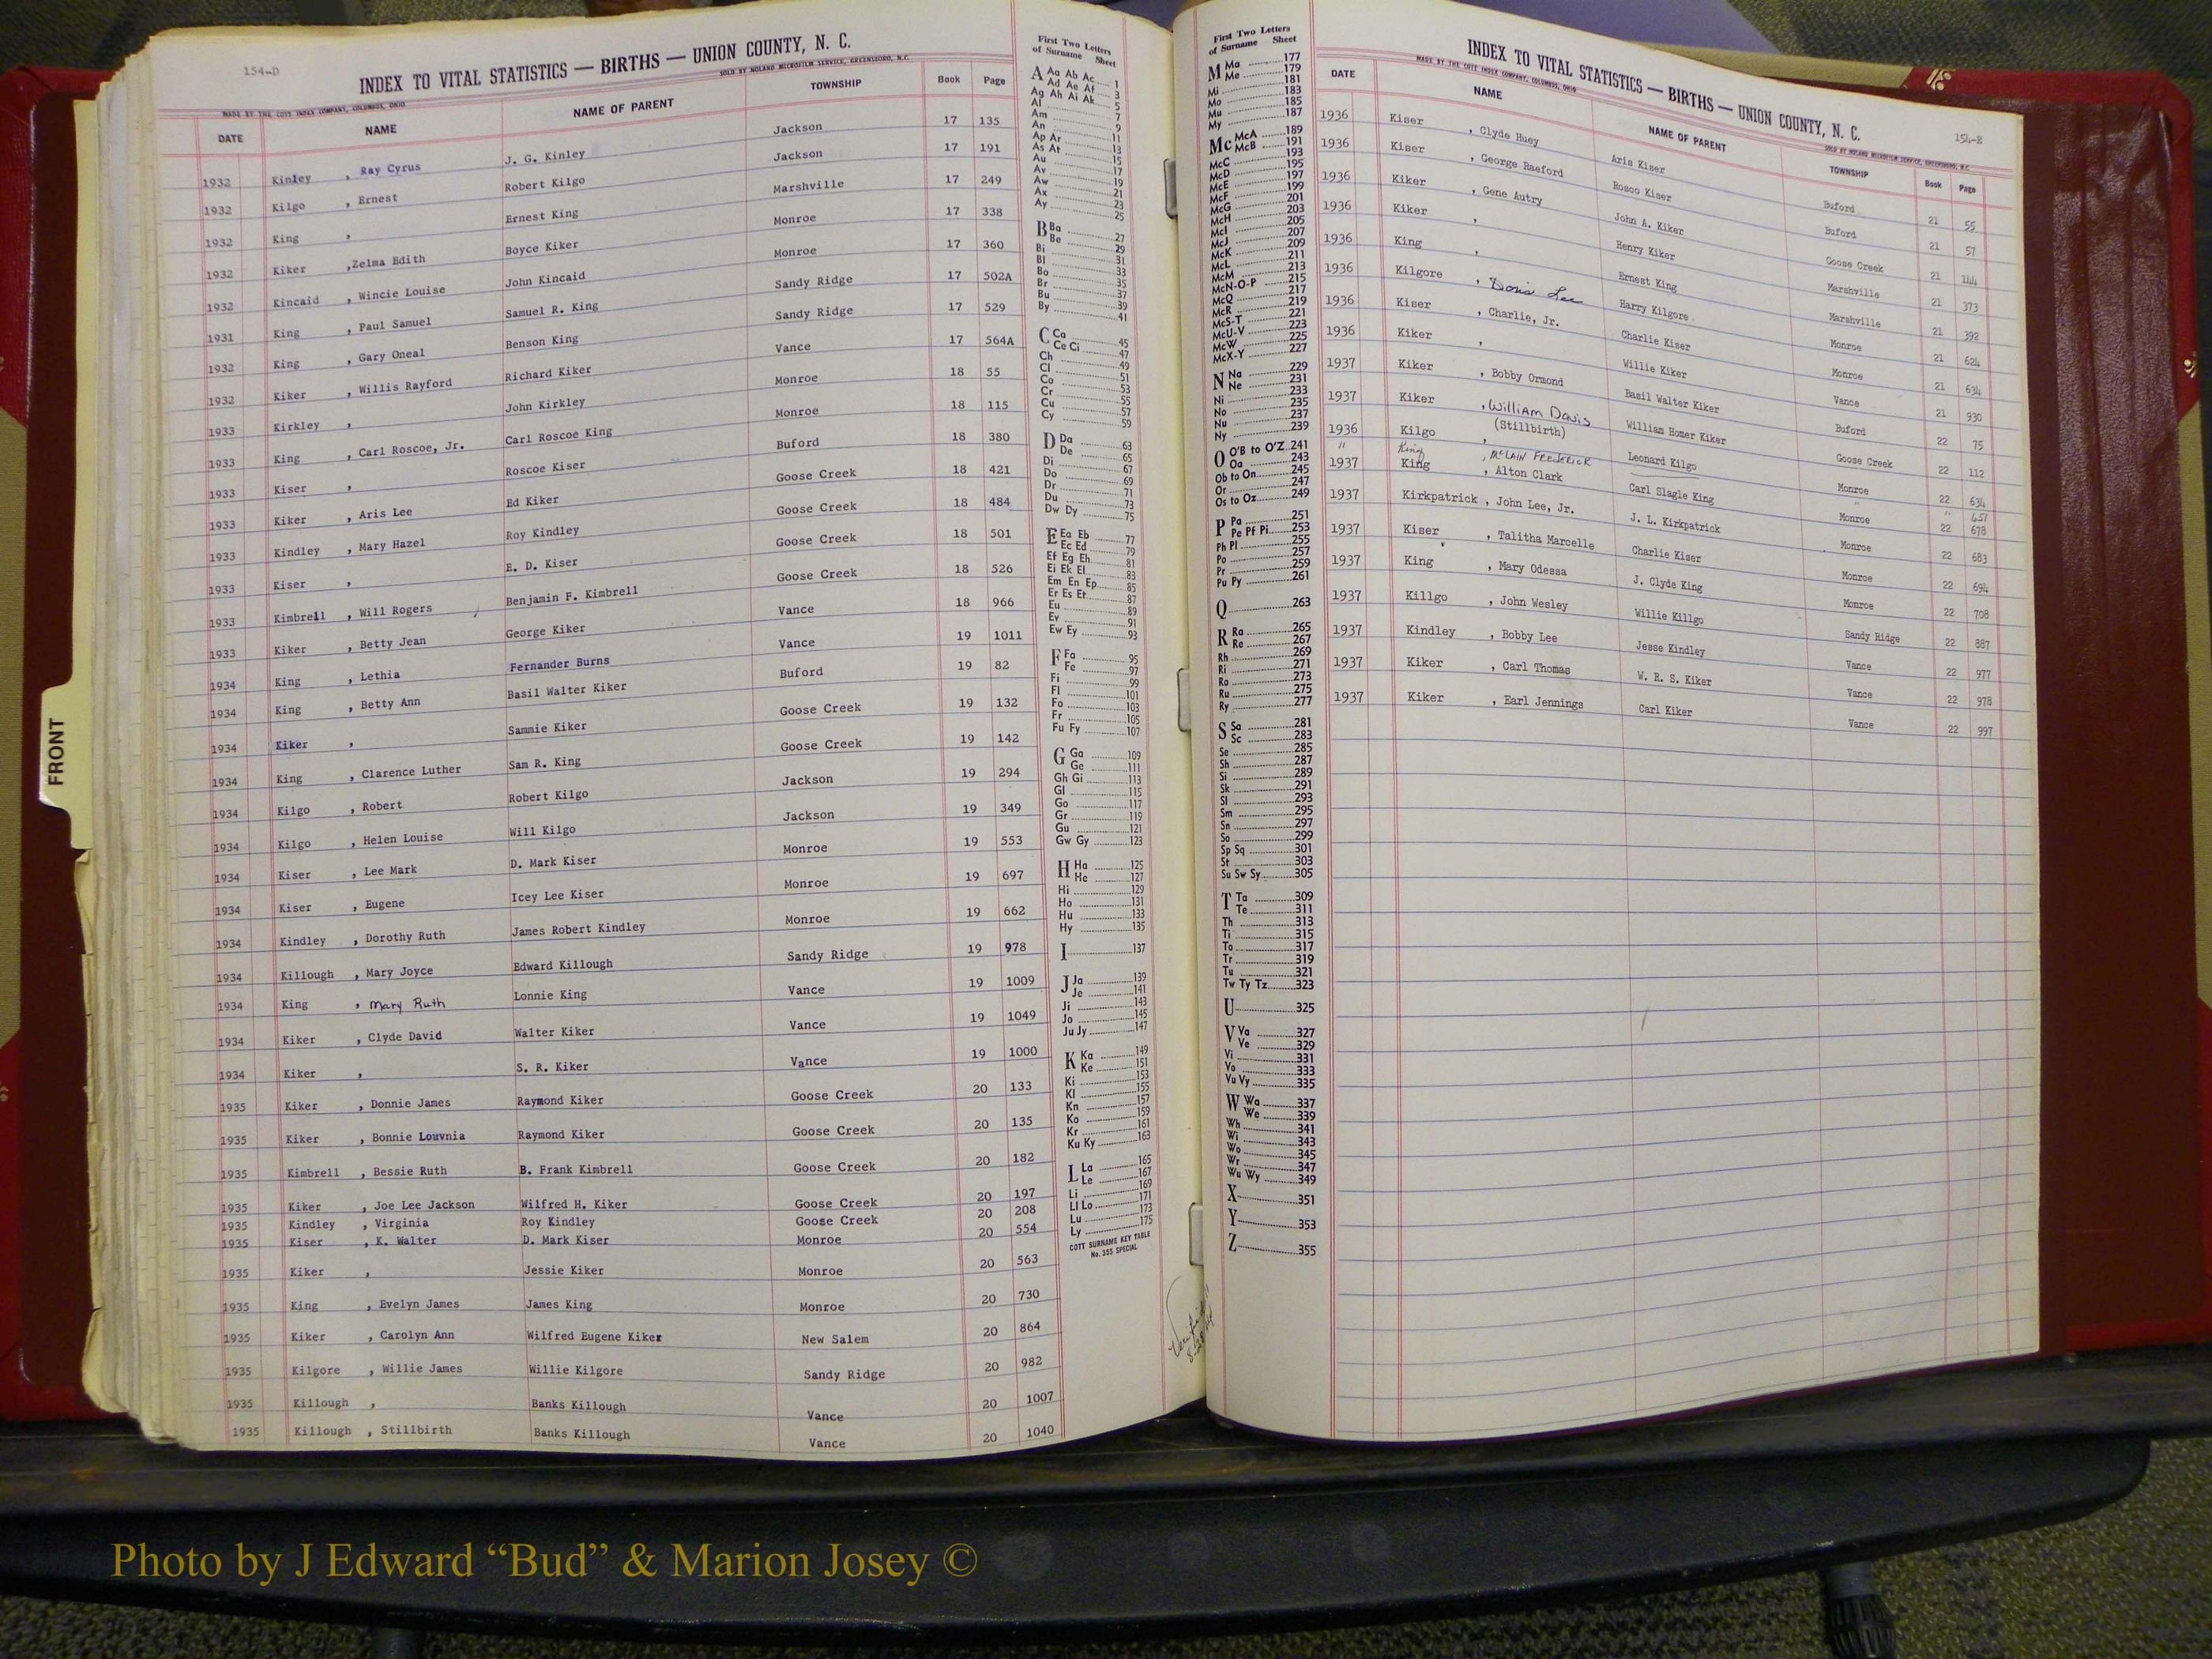 154-D
INDEX TO VITAL STATISTICS — BIRTHS — UNION COUNTY, N. C.
MADE BY THE COTT INDEX COMPANY, COLUMBUS, OHIO SOLD BY NOLAND MICROFILM SERVICE, GREENSBORO, N.C.
DATE NAME NAME OF PARENT TOWNSHIP Book Page
1932 Kinley , Ray Cyrus J. G. Kinley Jackson 17 135
1932 Kilgo , Ernest Robert Kilgo Jackson 17 191
1932 King , Ernest King Marshville 17 249
1932 Kiker ,Zelma Edith Boyce Kiker Monroe 17 338
1932 Kincaid , Wincie Louise John Kincaid Monroe 17 360
1931 King , Paul Samuel Samuel R. King Sandy Ridge 17 502A
1932 King , Gary Oneal Benson King Sandy Ridge 17 529
1932 Kiker , Willis Rayford Richard Kiker Vance 17 564A
1933 Kirkley , John Kirkley Monroe 18 55
1933 King , Carl Roscoe, Jr. Carl Roscoe King Monroe 18 115
1933 Kiser , Roscoe Kiser Buford 18 380
1933 Kiker , Aris Lee Ed Kiker Goose Creek 18 421
1933 Kindley , Mary Hazel Roy Kindley Goose Creek 18 484
1933 Kiser , E. D. Kiser Goose Creek 18 501
1933 Kimbrell , Will Rogers Benjamin F. Kimbrell Goose Creek 18 526
1933 Kiker , Betty Jean George Kiker Vance 18 966
1934 King , Lethia Fernander Burns Vance 19 1011
1934 King , Betty Ann Basil Walter Kiker Buford 19 82
1934 Kiker , Sammie Kiker Goose Creek 19 132
1934 King , Clarence Luther Sam R. King Goose Creek 19 142
1934 Kilgo , Robert Robert Kilgo Jackson 19 294
1934 Kilgo , Helen Louise Will Kilgo Jackson 19 349
1934 Kiser , Lee Mark D. Mark Kiser Monroe 19 553
1934 Kiser , Eugene Icey Lee Kiser Monroe 19 697
1934 Kindley , Dorothy Ruth James Robert Kindley Monroe 19 662
1934 Killough , Mary Joyce Edward Killough Sandy Ridge 19 978
1934 King , Mary Ruth Lonnie King Vance 19 1009
1934 Kiker , Clyde David Walter Kiker Vance 19 1049
1934 Kiker , S. R. Kiker Vance 19 1000
1935 Kiker , Donnie James Raymond Kiker Goose Creek 20 133
1935 Kiker , Bonnie Louvnia Raymond Kiker Goose Creek 20 135
1935 Kimbrell , Bessie Ruth B. Frank Kimbrell Goose Creek 20 182
1935 Kiker , Joe Lee Jackson Wilfred H. Kiker Goose Creek 20 197
1935 Kindley , Virginia Roy Kindley Goose Creek 20 208
1935 Kiser , K. Walter D. Mark Kiser Monroe 20 554
1935 Kiker , Jessie Kiker Monroe 20 563
1935 King , Evelyn James James King Monroe 20 730
1935 Kiker , Carolyn Ann Wilfred Eugene Kiker New Salem 20 864
1935 Kilgore , Willie James Willie Kilgore Sandy Ridge 20 982
1935 Killough , Banks Killough Vance 20 1007
1935 Killough , Stillbirth Banks Killough Vance 20 1040
FRONT
First Two Letters
of Surname Sheet
A Aa Ab Ac 1
Ad Ae Af 3
Ag Ah Ai Ak 5
Al 7
Am 9
An 11
Ap Ar 13
As At 15
Au 17
Av 19
Aw 21
Ax 23
Ay 25
B Ba 27
Be 29
Bi 31
Bl 33
Bo 35
Br 37
Bu 39
By 41
C Ca 45
Ce Ci 47
Ch 49
Cl 51
Co 53
Cr 55
Cu 57
Cy 59
D Da 63
De 65
Di 67
Do 69
Dr 71
Du 73
Dw Dy 75
E Ea Eb 77
Ec Ed 79
Ef Eg Eh 81
Ei Ek El 83
Em En Ep 85
Er Es Et 87
Eu 89
Ev 91
Ew Ey 93
F Fa 95
Fe 97
Fi 99
Fl 101
Fo 103
Fr 105
Fu Fy 107
G Ga 109
Ge 111
Gh Gi 113
Gl 115
Go 117
Gr 119
Gu 121
Gw Gy 123
H Ha 125
He 127
Hi 129
Ho 131
Hu 133
Hy 135
I 137
J Ja 139
Je 141
Ji 143
Jo 145
Ju Jy 147
K Ka 149
Ke 151
Ki 153
Kl 155
Kn 157
Ko 159
Kr 161
Ku Ky 163
L La 165
Le 167
Li 169
Ll Lo 171
Lu 173
Ly 175
COTT SURNAME KEY TABLE
No. 355 SPECIAL
First Two Letters
of Surname Sheet
M Ma 177
Me 179
Mi 181
Mo 183
Mu 185
My 187
Mc McA 189
McB 191
McC 193
McD 195
McE 197
McF 199
McG 201
McH 203
McI 205
McJ 207
McK 209
McL 211
McM 213
McN-O-P 215
McQ 217
McR 219
McS-T 221
McU-V 223
McW 225
McX-Y 227
N Na 229
Ne 231
Ni 233
No 235
Nu 237
Ny 239
O O'B to O'Z 241
Oa 243
Ob to On 245
Or 247
Os to Oz 249
P Pa 251
Pe Pf Pi 253
Ph Pl 255
Po 257
Pr 259
Pu Py 261
Q 263
R Ra 265
Re 267
Rh 269
Ri 271
Ro 273
Ru 275
Ry 277
S Sa 281
Sc 283
Se 285
Sh 287
Si 289
Sk 291
Sl 293
Sm 295
Sn 297
So 299
Sp Sq 301
St 303
Su Sw Sy 305
T Ta 309
Te 311
Th 313
Ti 315
To 317
Tr 319
Tu 321
Tw Ty Tz 323
U 325
V Va 327
Ve 329
Vi 331
Vo 333
Vu Vy 335
W Wa 337
We 339
Wh 341
Wi 343
Wo 345
Wr 347
Wu Wy 349
X 351
Y 353
Z 355
INDEX TO VITAL STATISTICS — BIRTHS — UNION COUNTY, N. C.
154-E
MADE BY THE COTT INDEX COMPANY, COLUMBUS, OHIO SOLD BY NOLAND MICROFILM SERVICE, GREENSBORO, N.C.
DATE NAME NAME OF PARENT TOWNSHIP Book Page
1936 Kiser , Clyde Huey Aris Kiser Buford 21 55
1936 Kiser , George Raeford Rosco Kiser Buford 21 57
1936 Kiker , Gene Autry John A. Kiker Goose Creek 21 144
1936 Kiker , Henry Kiker Marshville 21 373
1936 King , Ernest King Marshville 21 392
1936 Kilgore , Doris Lee Harry Kilgore Monroe 21 624
1936 Kiser , Charlie, Jr. Charlie Kiser Monroe 21 634
1936 Kiker , Willie Kiker Vance 21 930
1937 Kiker , Bobby Ormond Basil Walter Kiker Buford 22 75
1937 Kiker , William Davis (Stillbirth) William Homer Kiker Goose Creek 22 112
1936 Kilgo , Leonard Kilgo Monroe 22 634
" King , McLAIN FREDERICK " " 651
1937 King , Alton Clark Carl Slagle King Monroe 22 678
1937 Kirkpatrick , John Lee, Jr. J. L. Kirkpatrick Monroe 22 683
1937 Kiser , Talitha Marcelle Charlie Kiser Monroe 22 694
1937 King , Mary Odessa J. Clyde King Monroe 22 708
1937 Killgo , John Wesley Willie Killgo Sandy Ridge 22 887
1937 Kindley , Bobby Lee Jesse Kindley Vance 22 977
1937 Kiker , Carl Thomas W. R. S. Kiker Vance 22 978
1937 Kiker , Earl Jennings Carl Kiker Vance 22 997
Photo by J Edward “Bud” & Marion Josey ©